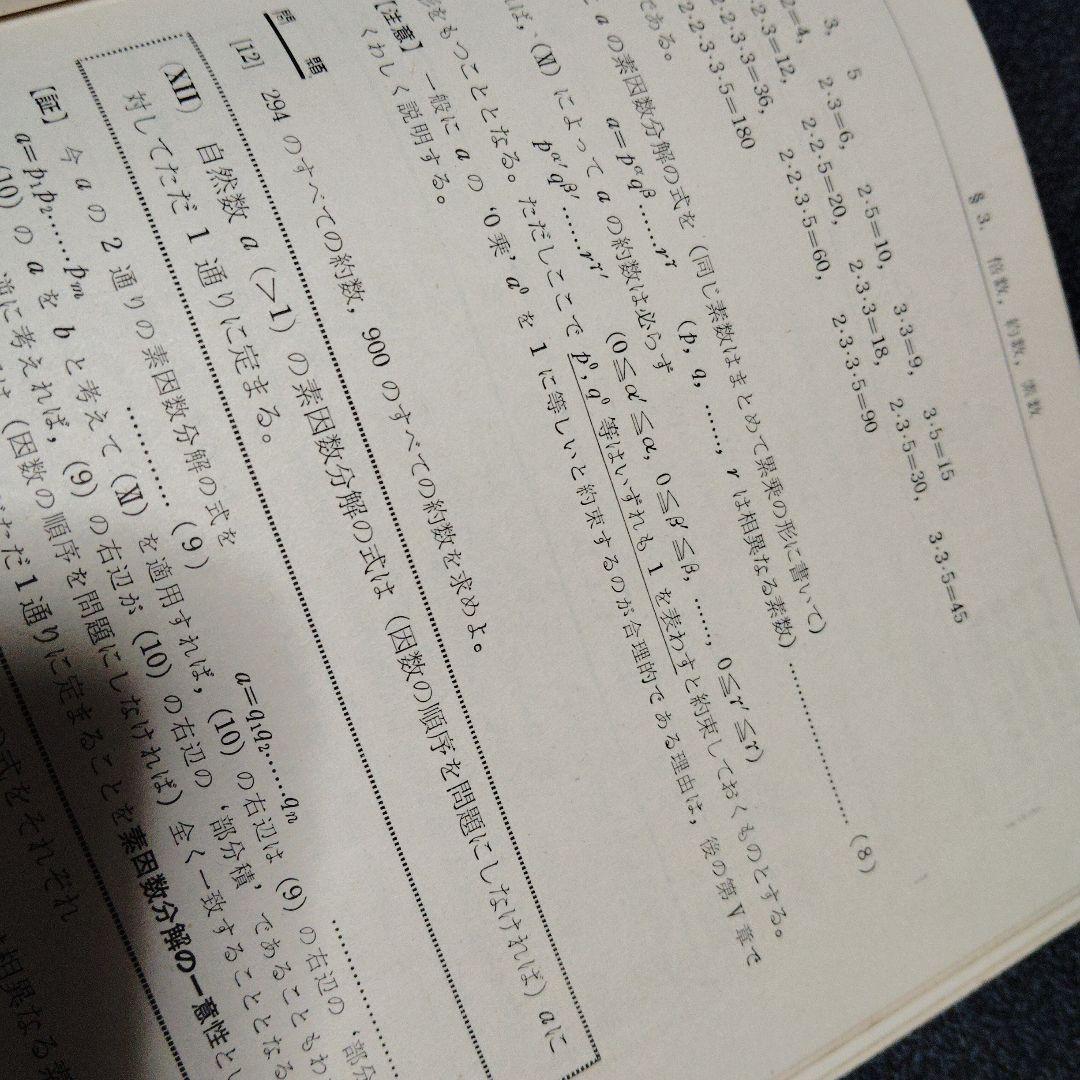 § 3. 倍数，約数，素数
3, 5
2·3=6, 2·5=10, 3·3=9, 3·5=15
2=4, 2·2·5=20, 2·3·3=18, 2·3·5=30, 3·3·5=45
2·3=12, 2·2·3·5=60, 2·3·3·5=90
2·2·3·3=36,
2·2·3·3·5=180
である。
a の素因数分解の式を（同じ素数はまとめて累乗の形に書いて）
a=p^α q^β ……r^γ (p, q, ……, r は相異なる素数) ………………………(8)
ば，(XI) によって a の約数は必らず
p^α′ q^β′ ……r^γ′ (0≦α′≦α, 0≦β′≦β, ……, 0≦γ′≦γ)
をもつこととなる。ただしここで p⁰, q⁰ 等はいずれも 1 を表わすと約束しておくものとする。
【注意】 一般に a の ‘0乗’ a⁰ を 1 に等しいと約束するのが合理的である理由は，後の第V章で
くわしく説明する。
問 題
[12] 294 のすべての約数，900 のすべての約数を求めよ。
(XII) 自然数 a (>1) の素因数分解の式は（因数の順序を問題にしなければ）aに
対してただ 1 通りに定まる。
【証】 今 a の 2 通りの素因数分解の式を
a=p₁p₂……pₘ ………… (9) a=q₁q₂……qₙ …………
(10) の a を b と考えて (XI) を適用すれば，(10) の右辺は (9) の右辺の ‘部分
逆に考えれば，(9) の右辺が (10) の右辺の ‘部分積’ であることもわ
は（因数の順序を問題にしなければ）全く一致することとなる
ただ 1 通りに定まることを素因数分解の一意性とい
の式をそれぞれ
相異なる素